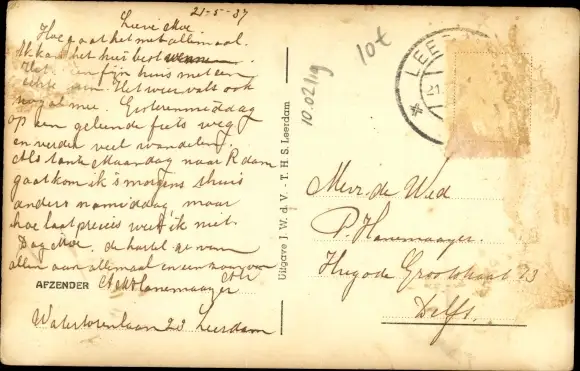 21-5-37
Lieve Moe.
Hoe gaat het met allemaal.
Ik kan het hier best
Het een fijn huis met een
tuin. Het weer valt ook
nogal mee. Gisterenmiddag
op een geleende fiets weg
en verder veel wandelen.
Als tante Maandag naar R'dam
gaat kom ik 's morgens thuis
anders namiddag maar
hoe laat precies weet ik niet.
Dag Moe. de hartel. gr van
allen aan allemaal en een zoen van
AFZENDER A Hanemaayer
Watertorenlaan 20 Leerdam
Uitgave J. W. d. V. - T. H. S. Leerdam
10.02119
10t
LEE
21.
Mevr. de Wed
P. Hanemaayer.
Hugo de Grootstraat 73
Delft.